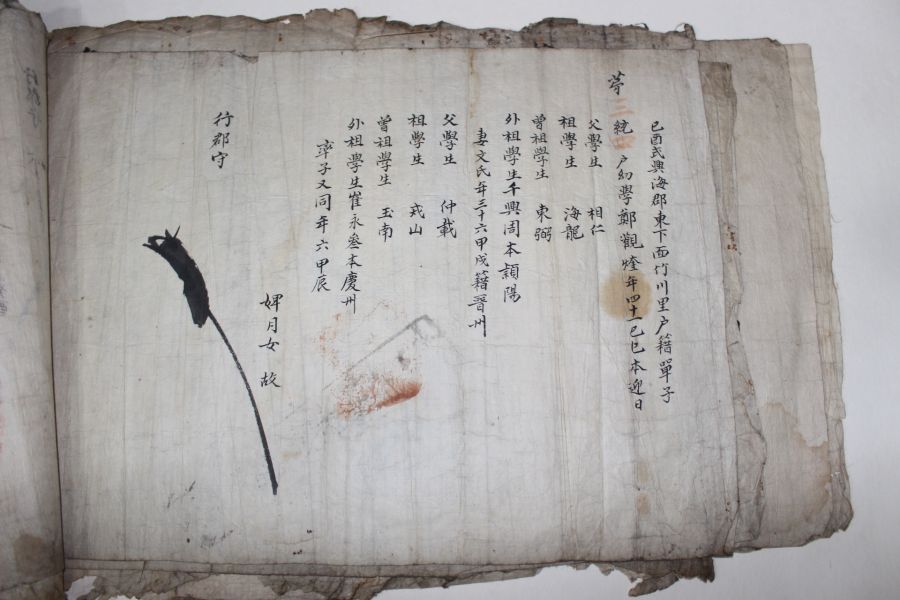 己酉式興海郡東下面竹川里户籍單子
苐三統 户幼學鄭觀燧年四十一己巳本迎日
父學生 相仁
祖學生 海龍
曾祖學生 東弼
外祖學生千興周本頴陽
妻文氏年三十六甲戌籍晋州
父學生 仲載
祖學生 戎山
曾祖學生 玉南
外祖學生崔永叄本慶州
率子又同年六甲辰
婢月女 故
行郡守